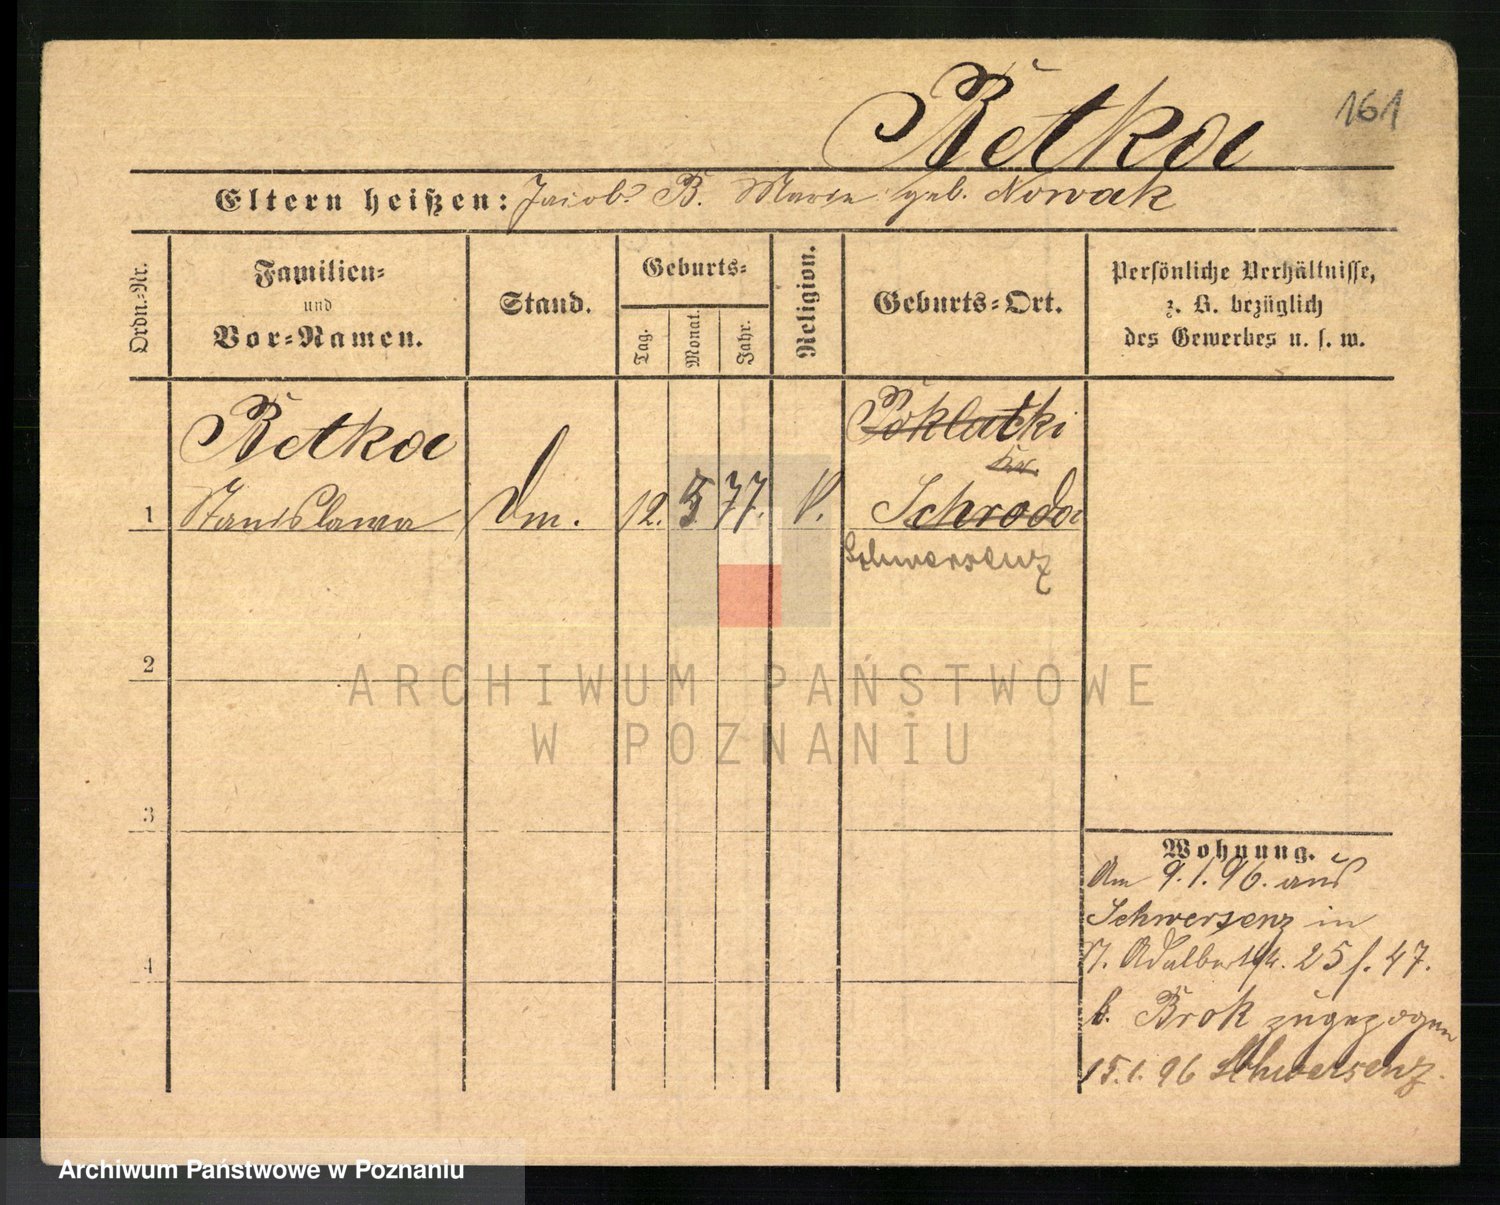 161
Retka
Eltern heißen: Jacob R. Marie geb. Nowak
Ordn.-Nr.
Familien- und Vor-Namen.
Stand.
Geburts-
Tag.
Monat.
Jahr.
Religion.
Geburts-Ort.
Persönliche Verhältnisse,
z. B. bezüglich
des Gewerbes u. s. w.
Retka
Poklatki
Kr.
1 Stanislawa Dm. 12. 5. 77. Schroda
Schwersenz
2
3
4
Wohnung.
Am 9.1.96. aus
Schwersenz in
St. Adalbertstr. 25 47.
b. Brok zugezogen
15.1.96 Schwersenz.
ARCHIWUM PAŃSTWOWE
W POZNANIU
Archiwum Państwowe w Poznaniu